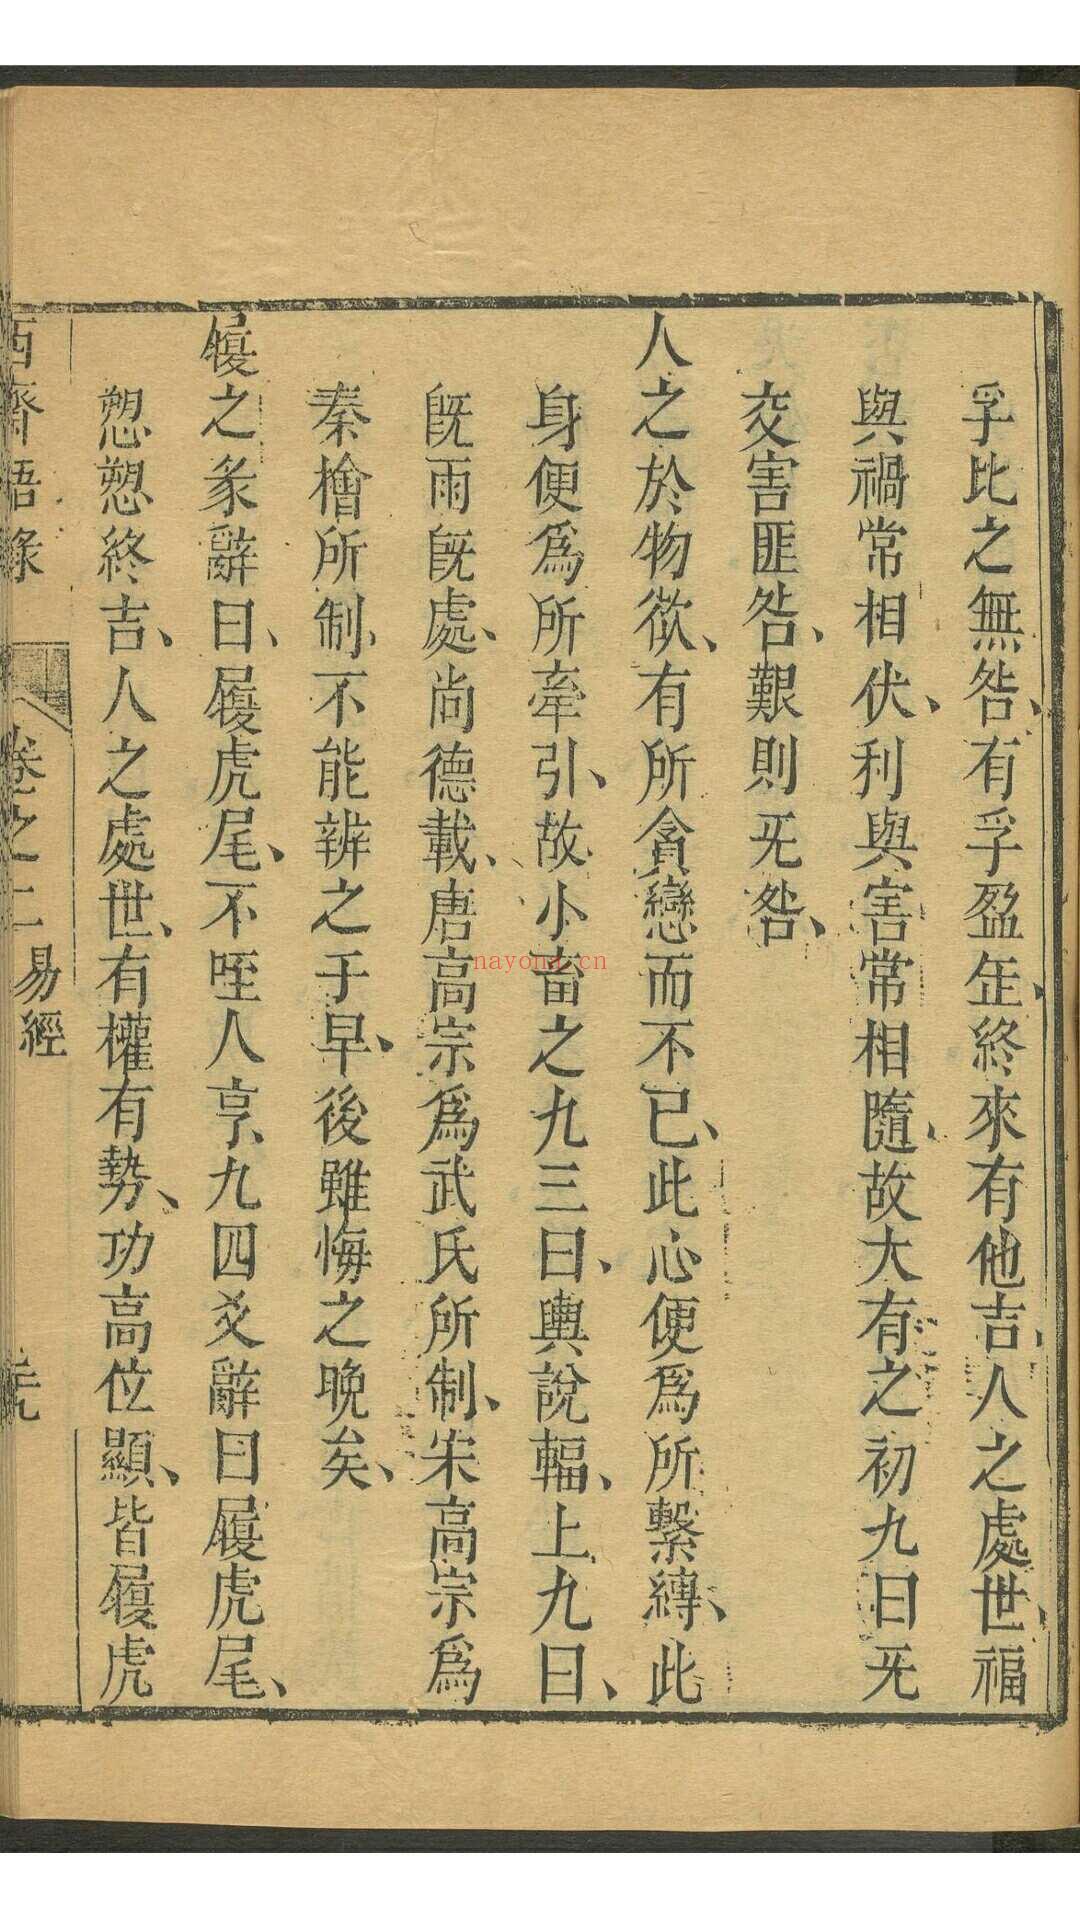 孚比之無咎、有孚盈缶、終來有他吉、人之處世、福
與禍常相伏、利與害常相隨、故大有之初九曰旡
交害匪咎、艱則旡咎、
人之於物欲、有所貪戀而不已、此心便爲所繫縛、此
身便爲所牽引、故小畜之九三曰、輿說輻、上九曰、
旣雨旣處、尚德載、唐高宗爲武氏所制、宋高宗爲
秦檜所制、不能辨之于早、後雖悔之晚矣、
履之彖辭曰、履虎尾、不咥人亨、九四爻辭曰履虎尾、
愬愬終吉、人之處世、有權有勢、功高位顯、皆履虎
西齋語錄 卷之二 易經
nayona.cn